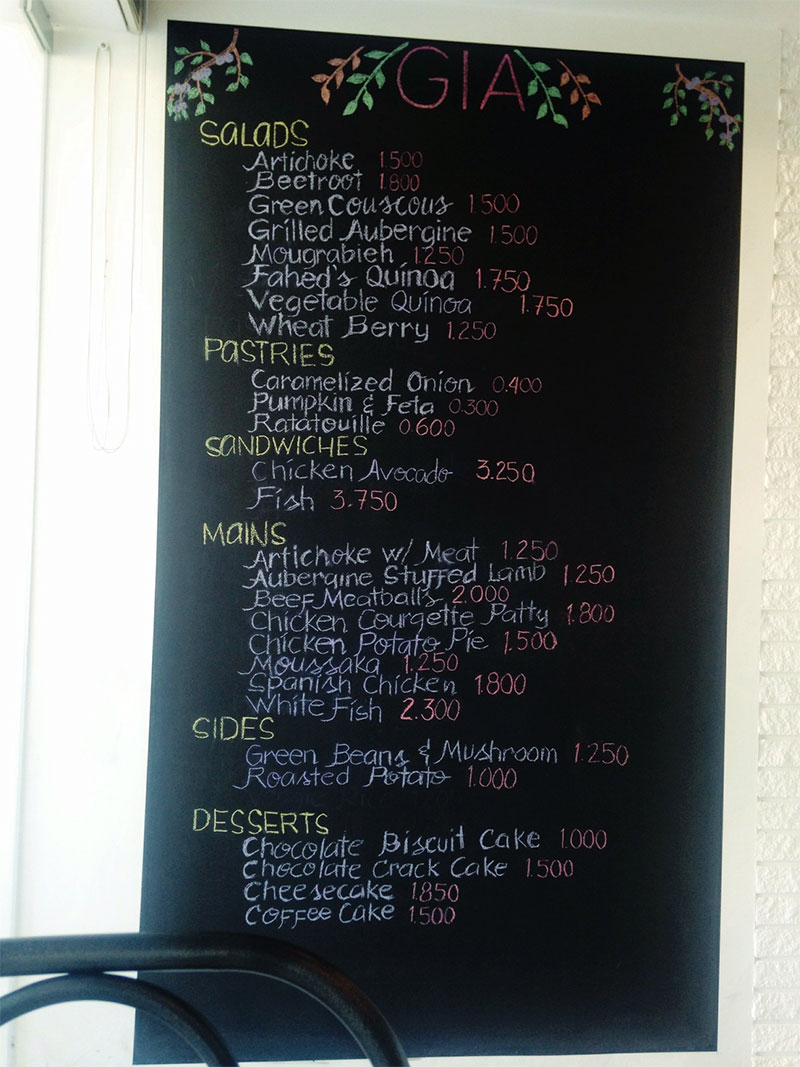 GIA
SALADS
Artichoke 1.500
Beetroot 1.800
Green Couscous 1.500
Grilled Aubergine 1.500
Mougrabieh 1.250
Fahed's Quinoa 1.750
Vegetable Quinoa 1.750
Wheat Berry 1.250
PASTRIES
Caramelized Onion 0.400
Pumpkin & Feta 0.300
Ratatouille 0.600
SANDWICHES
Chicken Avocado 3.250
Fish 3.750
MAINS
Artichoke w/ Meat 1.250
Aubergine Stuffed Lamb 1.250
Beef Meatballs 2.000
Chicken Courgette Patty 1.800
Chicken Potato Pie 1.500
Moussaka 1.250
Spanish Chicken 1.800
White Fish 2.300
SIDES
Green Beans & Mushroom 1.250
Roasted Potato 1.000
DESSERTS
Chocolate Biscuit Cake 1.000
Chocolate Crack Cake 1.500
Cheesecake 1.850
Coffee Cake 1.500